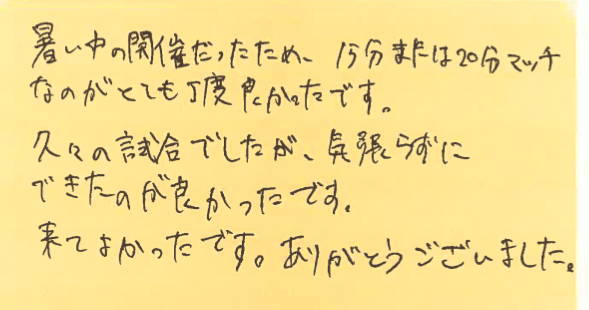 暑い中の開催だったため、15分または20分マッチ
なのがとても丁度良かったです。
久々の試合でしたが、気張らずに
できたのが良かったです。
来てよかったです。ありがとうございました。